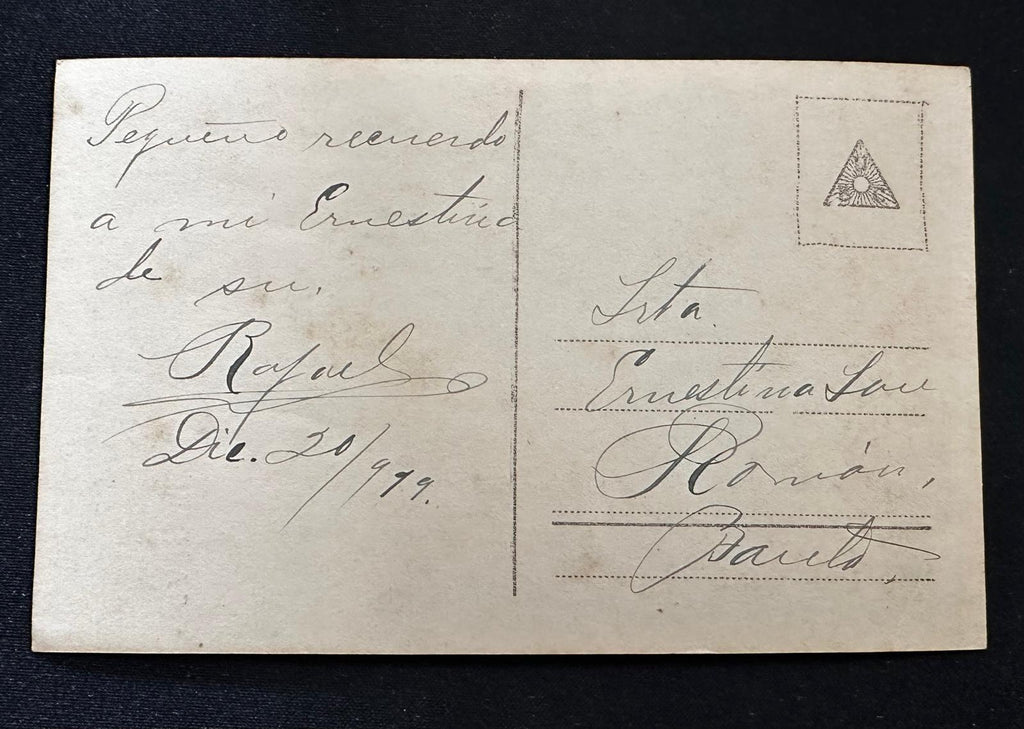 Pequeño recuerdo
a mi Ernestina
de su.
Rafael
Dic. 20/919.
Srta.
Ernestina San
Román,